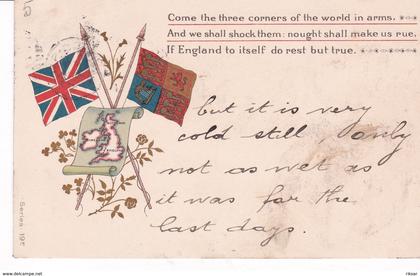 Come the three corners of the world in arms.
And we shall shock them: nought shall make us rue.
If England to itself do rest but true.
but it is very
cold still, only
not as wet as
it was for the
last days.
Series 197